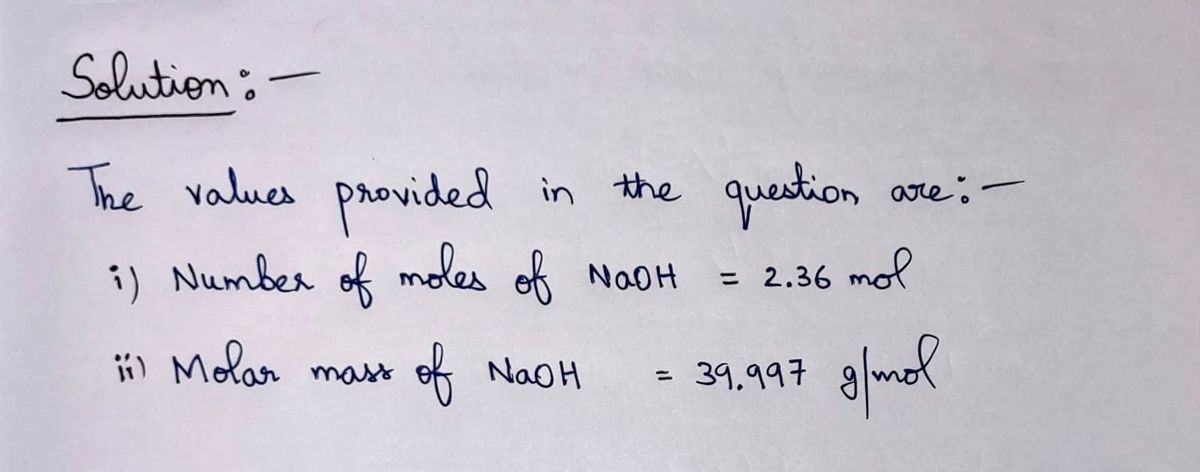 Solution:-
The values provided in the question are:-
i) Number of moles of NaOH = 2.36 mol
ii) Molar mass of NaOH = 39.997 g/mol